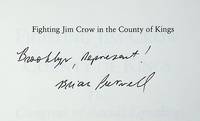 Fighting Jim Crow in the County of Kings
Brooklyn, Represent!
Brian Purnell